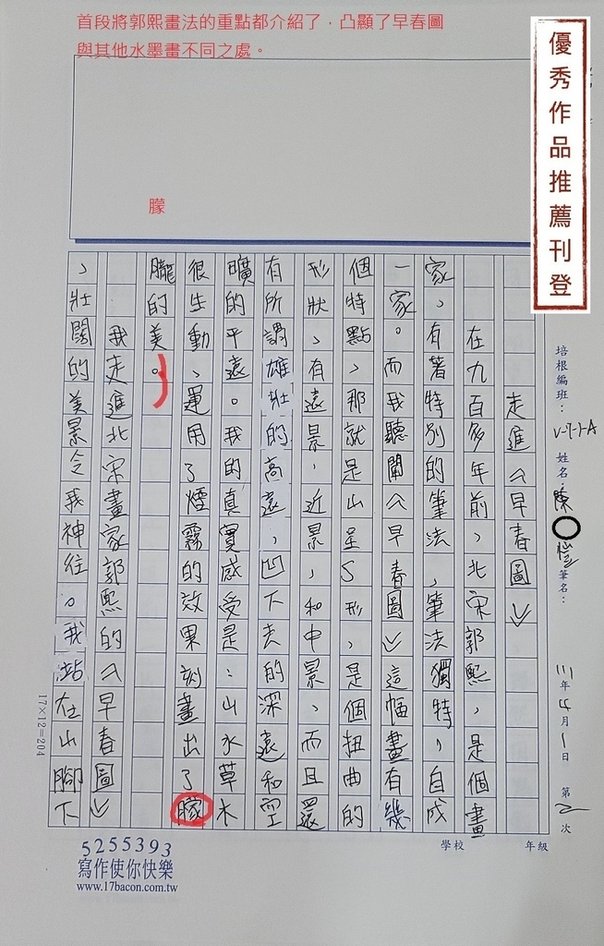 首段將郭熙畫法的重點都介紹了，凸顯了早春圖
與其他水墨畫不同之處。
優秀作品推薦刊登
朦
培根編班：V-7-1-A 姓名：陳〇 筆名： 111年4月1日 第2次
學校 年級
走進《早春圖》
在九百多年前，北宋郭熙，是個畫
家，有著特別的筆法，筆法獨特，自成
一家。而我聽聞《早春圖》這幅畫有幾
個特點，那就是山呈S形，是個扭曲的
形狀，有遠景，近景，和中景，而且還
有所謂雄壯的高遠，凹下去的深遠和空
曠的平遠。我的真實感受是：山水草木
很生動，運用了煙霧的效果刻畫出了朦
朧的美。
我走進北宋畫家郭熙的《早春圖》
，壯闊的美景令我神往。我站在山腳下
17×12=204
5255393
寫作使你快樂
www.17bacon.com.tw